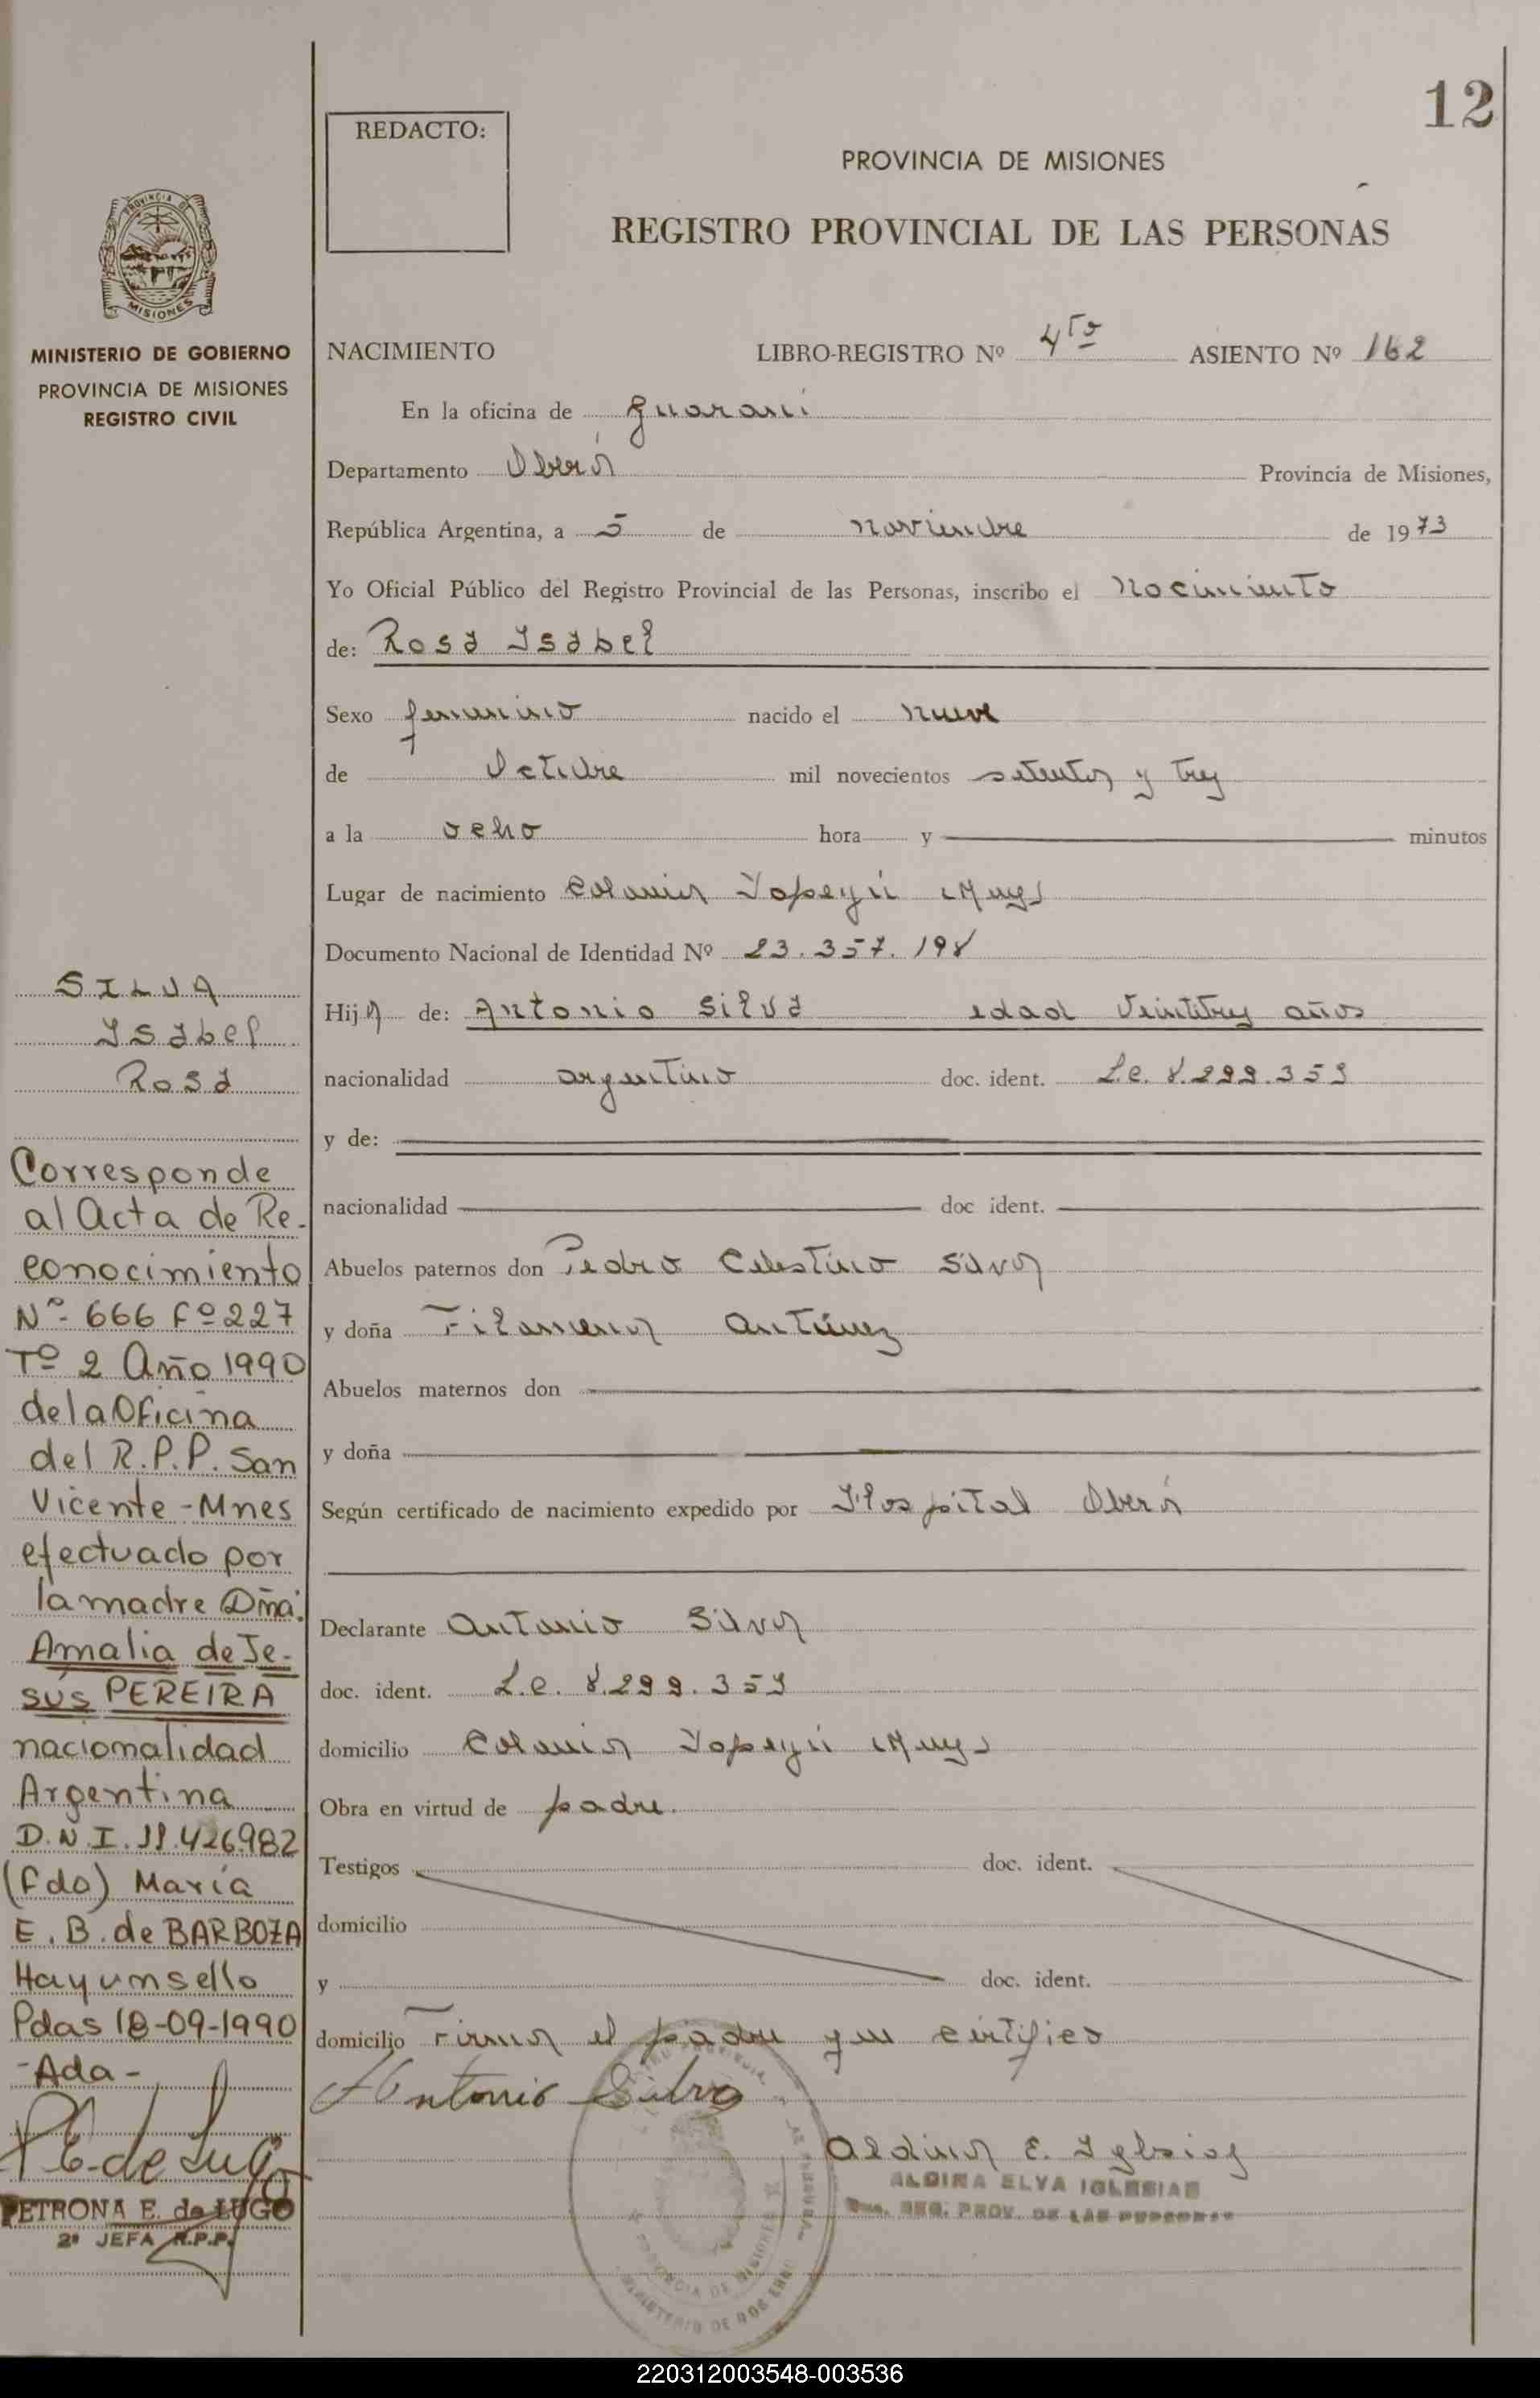 12
REDACTO:
PROVINCIA DE MISIONES
REGISTRO PROVINCIAL DE LAS PERSONAS
PROVINCIA DE
MISIONES
MINISTERIO DE GOBIERNO
PROVINCIA DE MISIONES
REGISTRO CIVIL
NACIMIENTO LIBRO-REGISTRO Nº 4to ASIENTO Nº 162
En la oficina de Guaraní
Departamento Oberá Provincia de Misiones,
República Argentina, a 5 de noviembre de 1973
Yo Oficial Público del Registro Provincial de las Personas, inscribo el Nacimiento
de: Rosa Isabel
Sexo femenino nacido el nueve
de Octubre mil novecientos setenta y tres
a la ocho hora y minutos
Lugar de nacimiento Colonia Yapeyú Mnes
Documento Nacional de Identidad Nº 23.357.198
Hija de: Antonio Silva edad Veintitres años
nacionalidad argentino doc. ident. L.e. 8.299.359
y de:
nacionalidad doc ident.
Abuelos paternos don Pedro Celestino Silva
y doña Filomena Antúnez
Abuelos maternos don
y doña
Según certificado de nacimiento expedido por Hospital Oberá
Declarante Antonio Silva
doc. ident. L.e. 8.299.359
domicilio Colonia Yapeyú Mnes
Obra en virtud de padre.
Testigos doc. ident.
domicilio
y doc. ident.
domicilio Firma el padre que certifico
Antonio Silva
Aldina E. Iglesias
ALDINA ELVA IGLESIAS
REG. PROV. DE LAS PERSONAS
PROVINCIA DE MISIONES
MINISTERIO DE GOBIERNO
SILVA
Isabel
Rosa
Corresponde
al Acta de Re-
conocimiento
Nº- 666 Fº 227
Tº 2 Año 1990
de la Oficina
del R.P.P. San
Vicente - Mnes
efectuado por
la madre Dña:
Amalia de Je-
sús PEREIRA
nacionalidad
Argentina
D.N.I. 11.426.982
(Fdo) María
E. B. de BARBOZA
Hay un sello
Pdas 18-09-1990
- Ada -
P E. de Lugo
PETRONA E. de LUGO
2ª JEFA R.P.P.
220312003548-003536